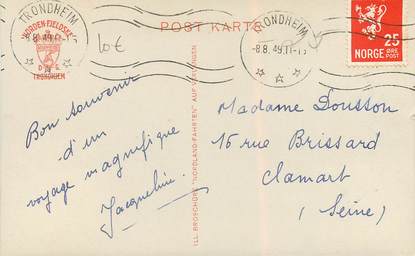 TRONDHEIM
-8.8.49.17-
TRONDHEIM
-8.8.49.17-
NORDEN-FJELDSKE
TRONDHJEM
10€
POST KARTE
25
ØRE
NORGE
POST
Bon souvenir
d'un
voyage magnifique
Jacqueline.
ILL. BROSCHÜRE "NORDLAND-FAHRTEN" AUF VERLANGEN
Madame Dousson
16 rue Brissard
Clamart
(Seine)